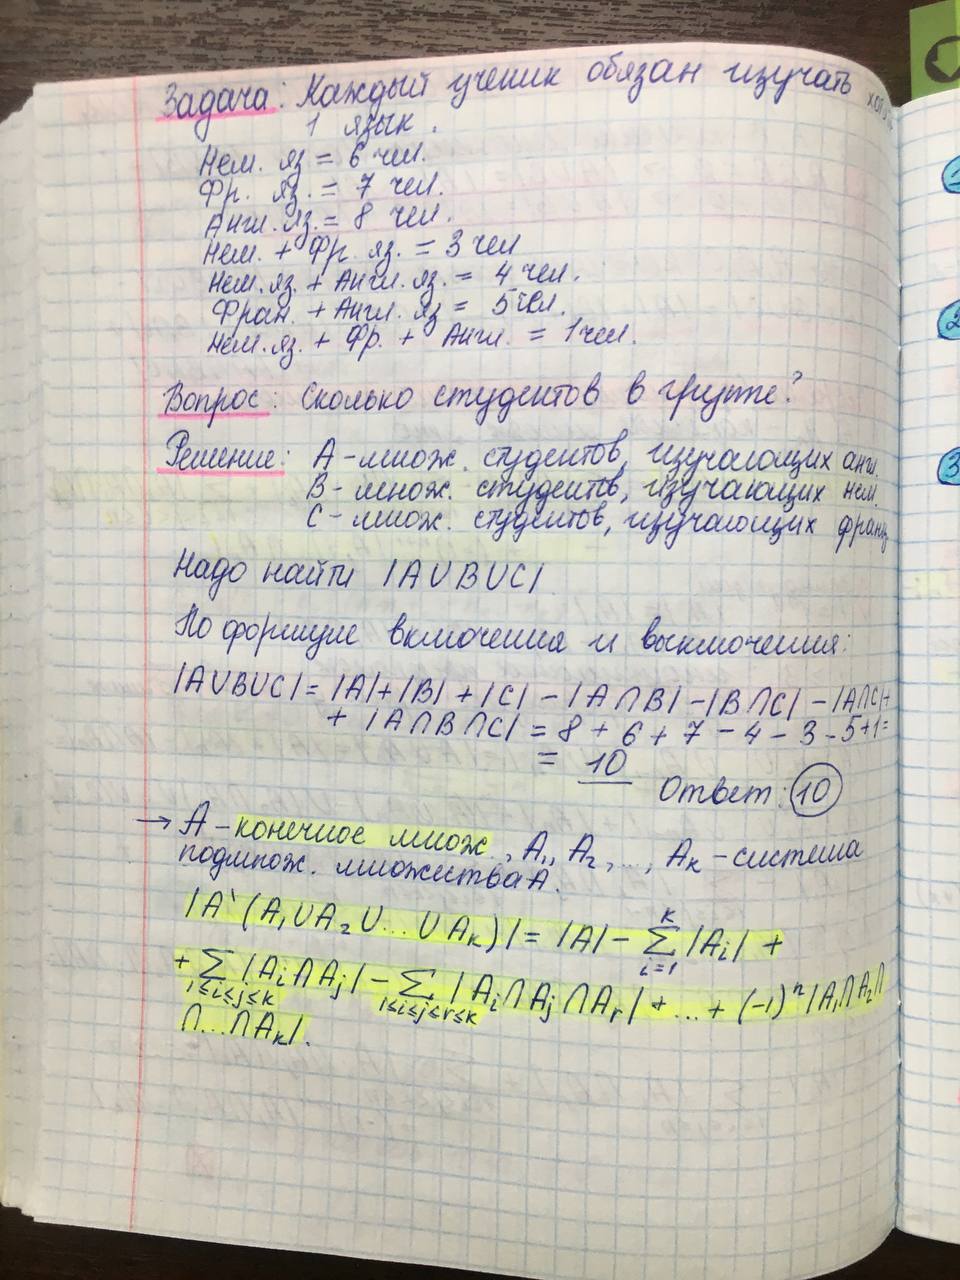 Задача: Каждый ученик обязан изучать хотя
1 язык.
Нем. яз = 6 чел.
Фр. яз. = 7 чел.
Англ. яз. = 8 чел.
Нем. + Фр. яз. = 3 чел
Нем. яз. + Англ. яз. = 4 чел.
Фран. + Англ. яз = 5 чел.
Нем. яз. + Фр. + Англ. = 1 чел.
Вопрос: Сколько студентов в группе?
Решение: A - множ. студентов, изучающих англ.
B - множ. студентов, изучающих нем.
C - множ. студентов, изучающих франц
Надо найти |A∪B∪C|
По формуле включения и выключения:
|A∪B∪C| = |A| + |B| + |C| - |A∩B| - |B∩C| - |A∩C| +
+ |A∩B∩C| = 8 + 6 + 7 - 4 - 3 - 5 + 1 =
= 10
Ответ: 10
→ A - конечное множ, A₁, A₂, ..., Aₖ - система
подмнож. множества A.
|A`(A₁∪A₂∪...∪Aₖ)| = |A| - ∑ᵢ₌₁ᴷ |Aᵢ| +
+ ∑ 1≤i≤j≤k |Aᵢ∩Aⱼ| - ∑ 1≤i≤j≤r≤k |Aᵢ∩Aⱼ∩Aᵣ| + ... + (-1)ⁿ |A₁∩A₂∩
∩...∩Aₖ|.
1
2
3